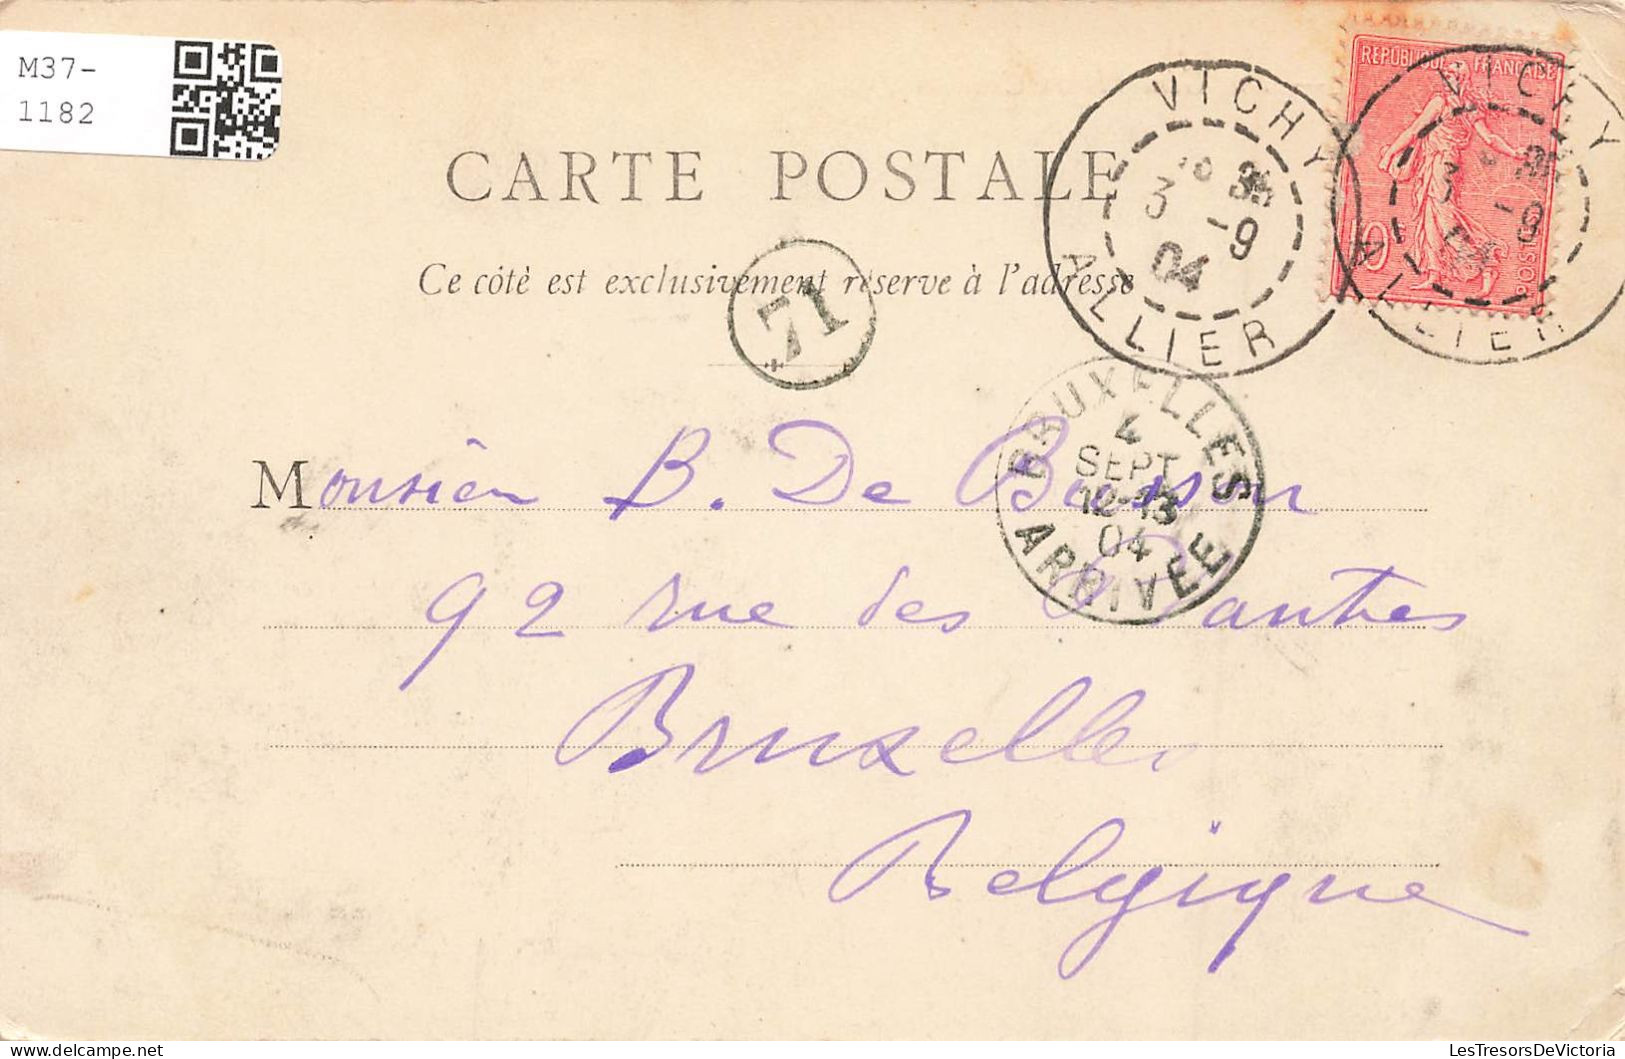 M37-
1182
CARTE POSTALE
Ce côté est exclusivement réservé à l'adresse
REPUBLIQUE FRANÇAISE
10c
POSTES
VICHY
10 35
3 -9
04
ALLIER
VICHY
3 -9
04
ALLIER
71
BRUXELLES
4
SEPT
12-13
04
ARRIVÉE
Monsieur B. De
92 rue des Plantes
Bruxelles
Belgique
LesTresorsDeVictoria